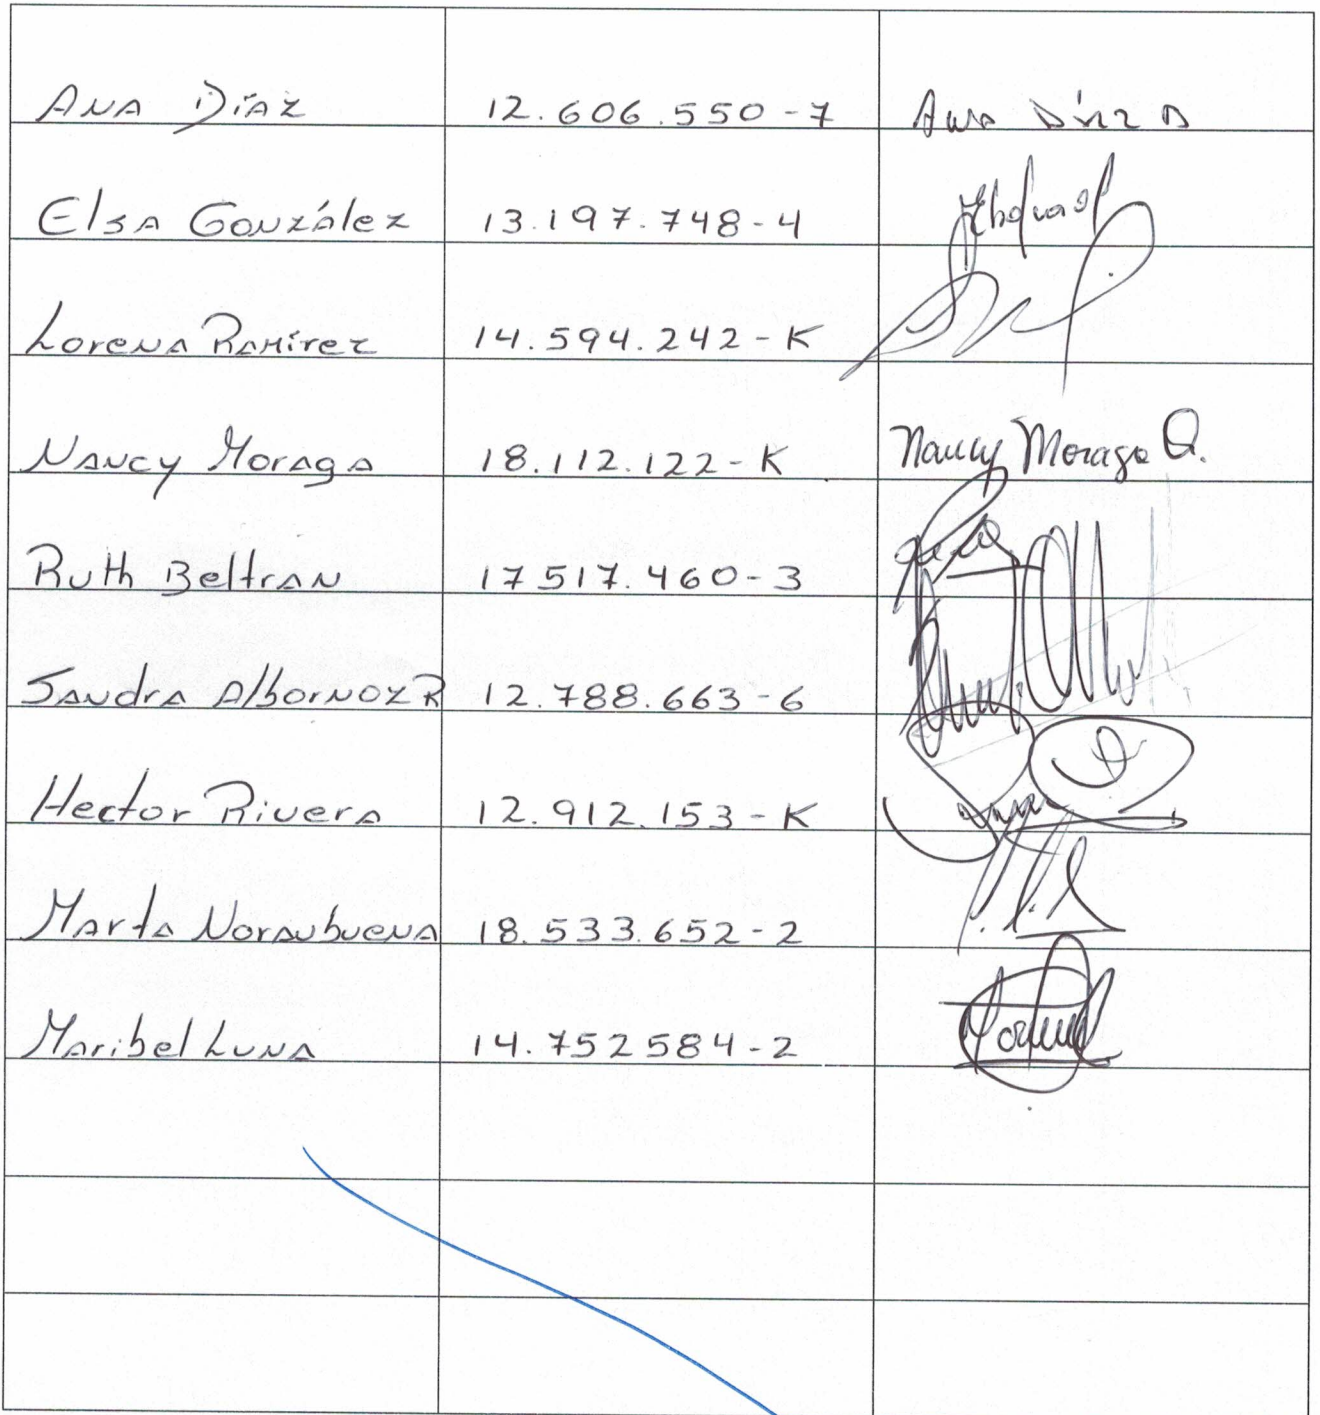 Ana Díaz 12.606.550-7 Ana Díaz D
Elsa González 13.197.748-4
Lorena Ramírez 14.594.242-K
Nancy Moraga 18.112.122-K Nancy Moraga Q.
Ruth Beltran 17517.460-3
Sandra Albornoz R 12.788.663-6
Hector Rivera 12.912.153-K
Marta Noranbuena 18.533.652-2
Maribel Luna 14.752584-2